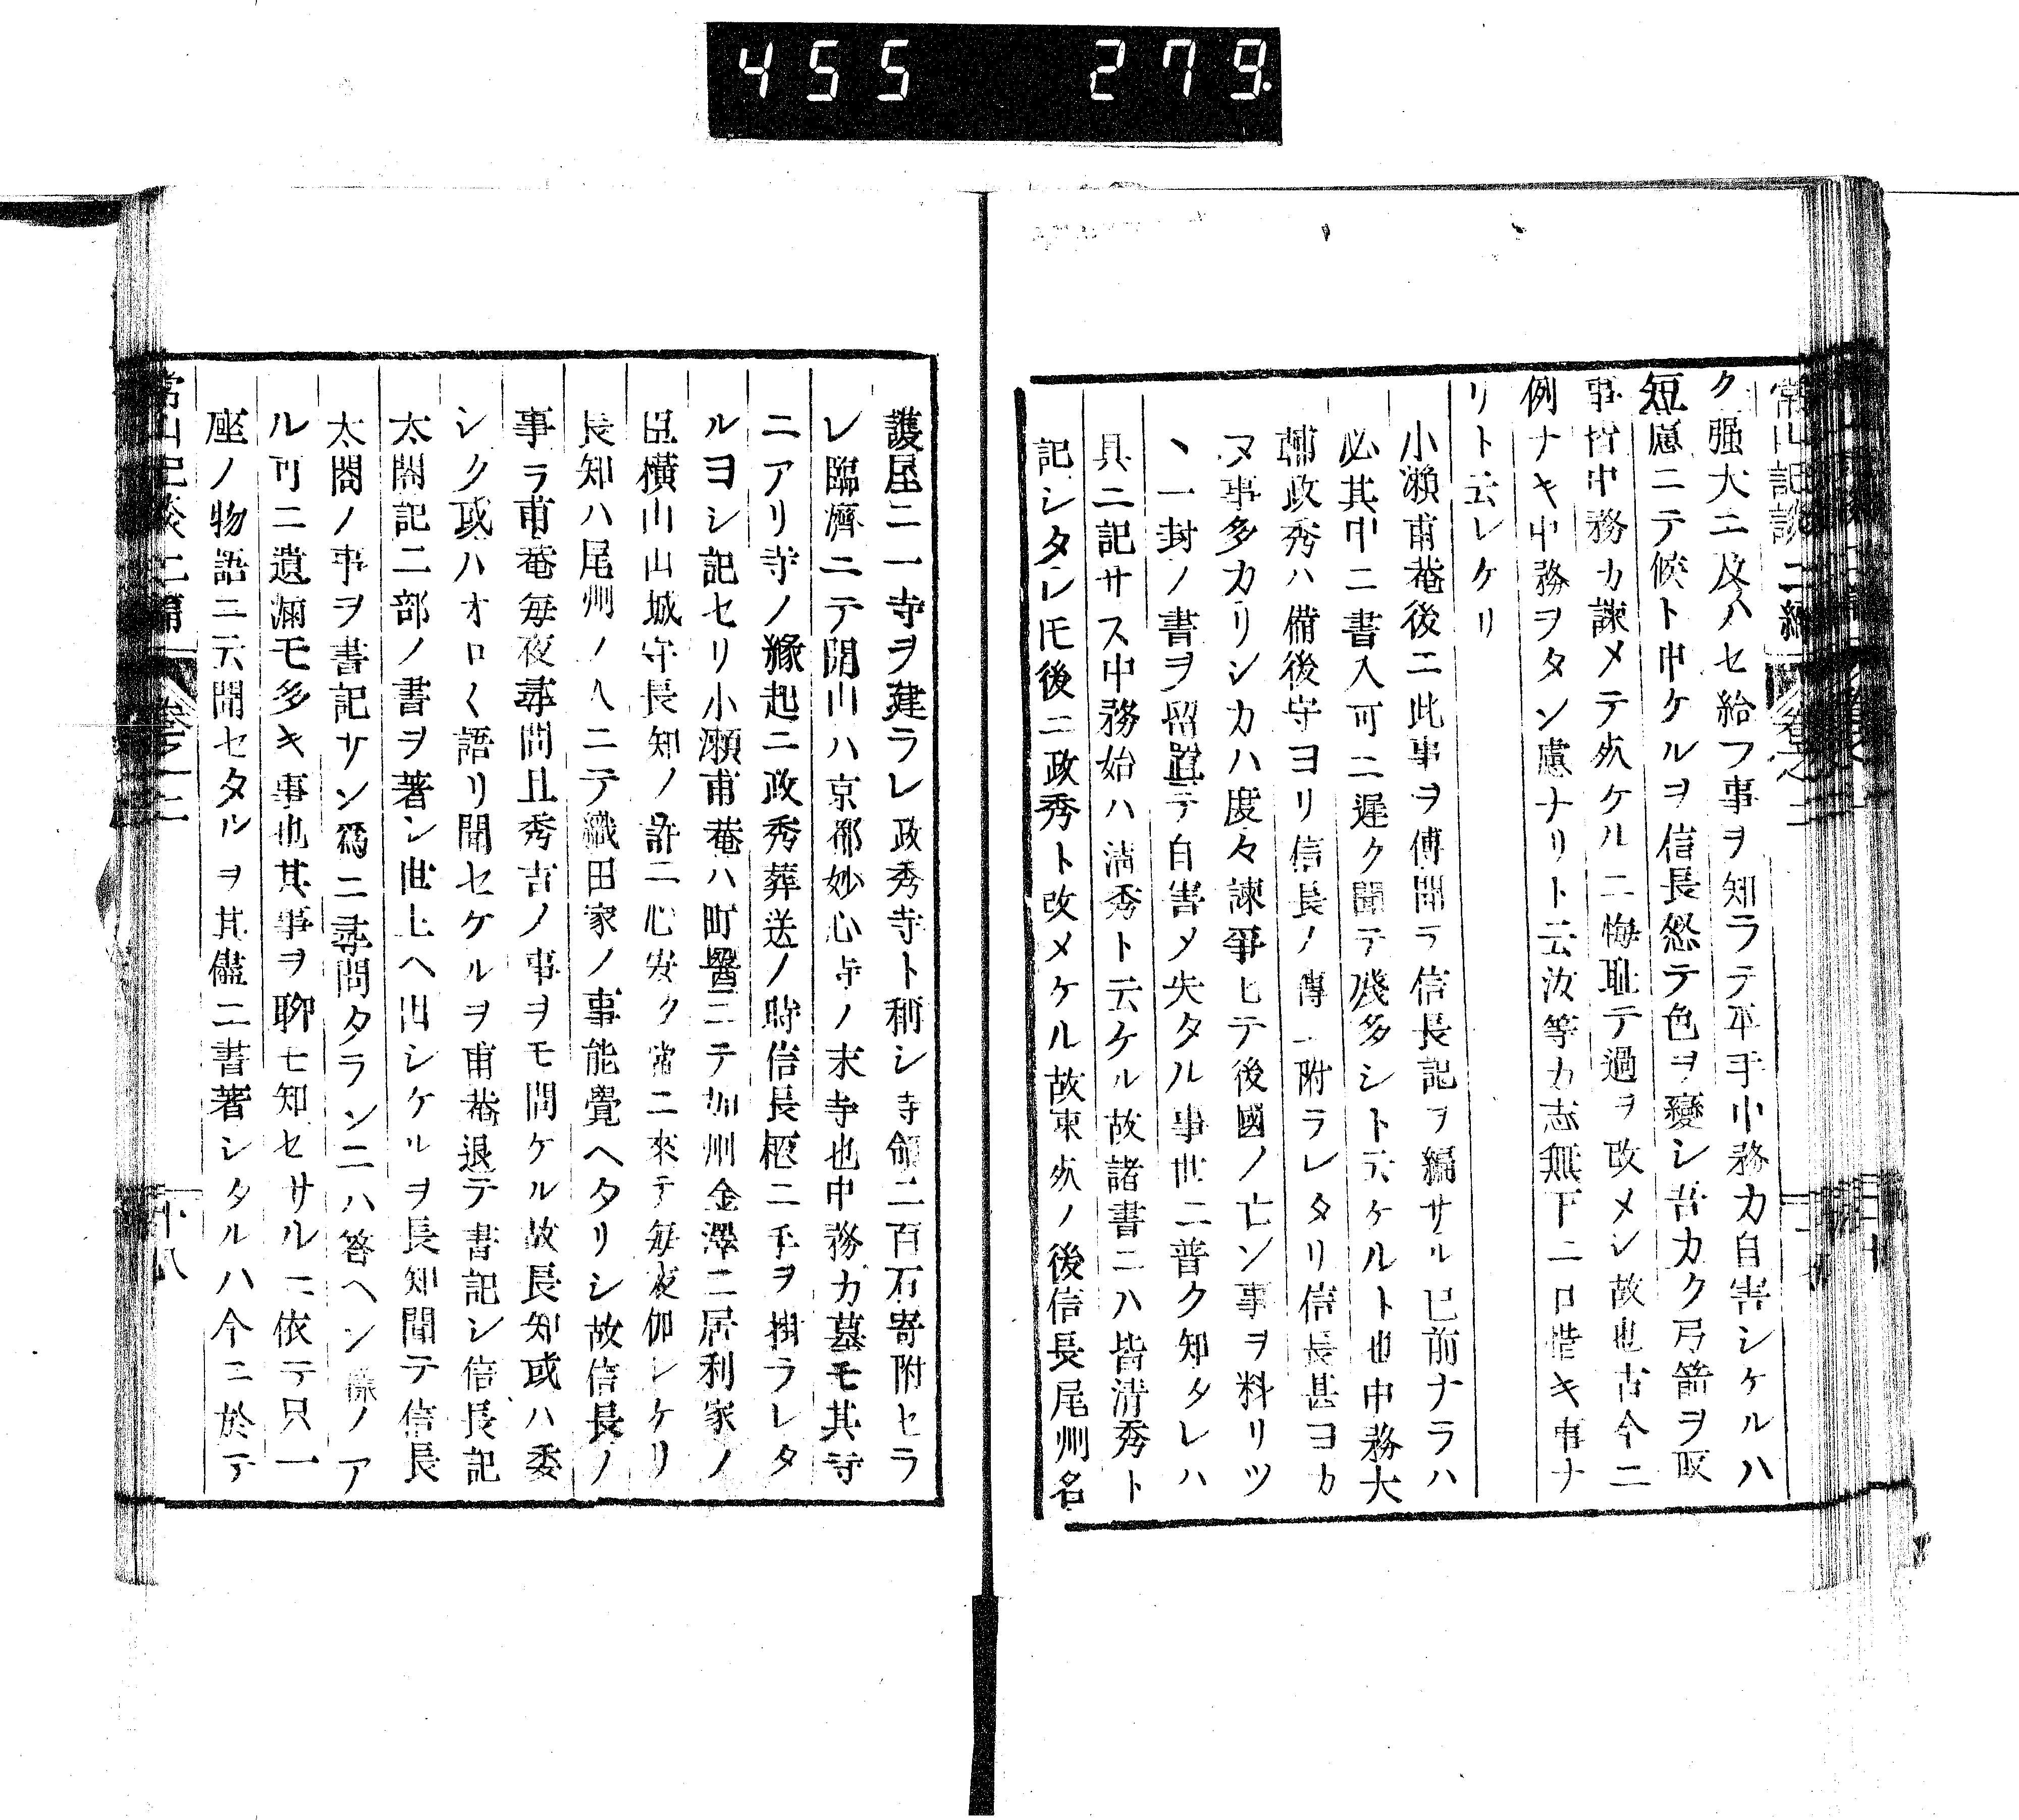 455 279.
常山記談 二編 卷之二
ク强大ニ及ハセ給フ事ヲ知ラテ平手中務カ自害シケルハ
短慮ニテ候ト申ケルヲ信長怒テ色ヲ變シ吾カク弓箭ヲ取
事皆中務カ諫メテ死ケルニ悔耻テ過ヲ改メシ故也古今ニ
例ナキ中務ヲタン慮ナリト云汝等カ志無下ニ口惜キ事ナ
リト云レケリ
小瀨甫菴後ニ此事ヲ傳聞テ信長記ヲ編サル已前ナラハ
必其中ニ書入可ニ遲ク聞テ殘多シト云ケルト也中務大
輔政秀ハ備後守ヨリ信長ノ傳ニ附ラレタリ信長甚ヨカ
ヌ事多カリシカハ度々諫爭ヒテ後國ノ亡ン事ヲ料リツ
ヽ一封ノ書ヲ留置テ自害メ失タル事世ニ普ク知タレハ
具ニ記サス中務始ハ淸秀ト云ケル故諸書ニハ皆淸秀ト
記シタレ𪜈後ニ政秀ト改メケル故東死ノ後信長尾州名
護屋ニ一寺ヲ建ラレ政秀寺ト稱シ寺領二百石寄附セラ
レ臨濟ニテ開山ハ京都妙心寺ノ末寺也中務カ墓モ其寺
ニアリ寺ノ緣起ニ政秀葬送ノ時信長柩ニ手ヲ掛ラレタ
ルヨシ記セリ小瀨甫菴ハ町醫ニテ加州金澤ニ居利家ノ
臣橫山山城守長知ノ許ニ心安ク常ニ來テ每夜伽シケリ
長知ハ尾州ノ人ニテ織田家ノ事能覺ヘタリシ故信長ノ
事ラ甫菴每夜尋問且秀吉ノ事ヲモ問ケル故長知或ハ委
シク或ハオロ〱語リ聞セケルヲ甫菴退テ書記シ信長記
太閤記二部ノ書ヲ著シ世上ヘ出シケルヲ長知聞テ信長
太閤ノ事ヲ書記サン爲ニ尋問タランニハ答ヘン樣ノア
ル可ニ遺漏モ多キ事也其事ヲ聊モ知セサルニ依テ只一
座ノ物語ニ云聞セタルヲ其儘ニ書著シタルハ今ニ於テ
常山記談二編 卷之二 十八